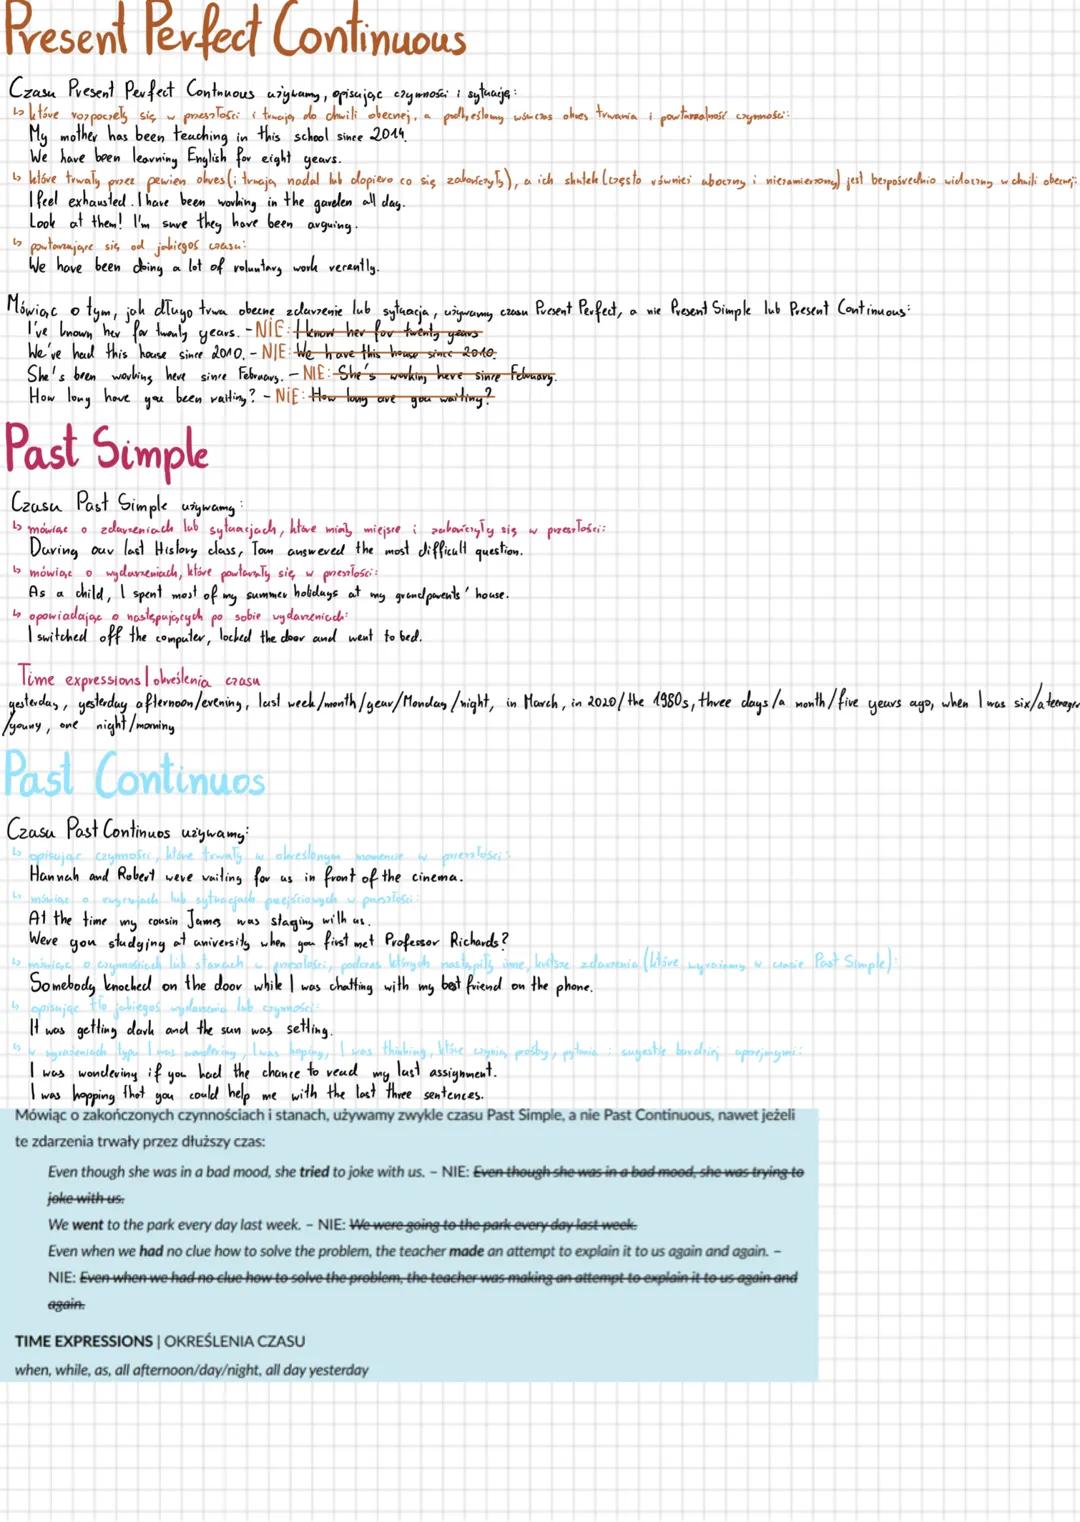 Present Perfect Continuous
Czasu Present Perfect Contnuous używamy, opisując czynności i sytuację:
↳ które rozpoczęły się w przeszłości i trwają do chwili obecnej, a podkreślamy wówczas okres trwania i powtarzalność czynności:
My mother has been teaching in this school since 2014.
We have been learning English for eight years.
↳ które trwały przez pewien okres (i trwają nadal lub dopiero co się zakończyły), a ich skutek (często również uboczny i niezamierzony) jest bezpośrednio widoczny w chwili obecnej:
I feel exhausted. I have been working in the garden all day.
Look at them! I'm sure they have been arguing.
↳ powtarzające się od jakiegoś czasu:
We have been doing a lot of voluntary work recently.
Mówiąc o tym, jak długo trwa obecne zdarzenie lub sytuacja, używamy czasu Present Perfect, a nie Present Simple lub Present Continuous:
I've known her for twenty years. - NIE: I know her for twenty years
We've had this house since 2010. - NIE: We have this house since 2010.
She's been working here since February. - NIE: She's working here since February.
How long have you been waiting? - NIE: How long are you waiting?
Past Simple
Czasu Past Simple używamy:
↳ mówiąc o zdarzeniach lub sytuacjach, które miały miejsce i zakończyły się w przeszłości:
During our last History class, Tom answered the most difficult question.
↳ mówiąc o wydarzeniach, które powtarzały się w przeszłości:
As a child, I spent most of my summer holidays at my grandparents' house.
↳ opowiadając o następujących po sobie wydarzeniach:
I switched off the computer, locked the door and went to bed.
Time expressions | określenia czasu
yesterday, yesterday afternoon/evening, last week/month/year/Monday/night, in March, in 2020/the 1980s, three days/a month/five years ago, when I was six/a teenager
/young, one night/morning
Past Continuos
Czasu Past Continuos używamy:
↳ opisując czynności, które trwały w określonym momencie w przeszłości:
Hannah and Robert were waiting for us in front of the cinema.
↳ mówiąc o zwyczajach lub sytuacjach przejściowych w przeszłości:
At the time my cousin James was staying with us.
Were you studying at university when you first met Professor Richards?
↳ mówiąc o czynnościach lub stanach w przeszłości, podczas których nastąpiły inne, krótsze zdarzenia (które wyrażamy w czasie Past Simple):
Somebody knocked on the door while I was chatting with my best friend on the phone.
↳ opisując tło jakiegoś wydarzenia lub czynności:
It was getting dark and the sun was setting.
↳ w wyrażeniach typu I was wondering, I was hoping, I was thinking, które czynią prośby, pytania i sugestie bardziej uprzejmymi:
I was wondering if you had the chance to read my last assignment.
I was hopping that you could help me with the last three sentences.
Mówiąc o zakończonych czynnościach i stanach, używamy zwykle czasu Past Simple, a nie Past Continuous, nawet jeżeli
te zdarzenia trwały przez dłuższy czas:
Even though she was in a bad mood, she tried to joke with us. – NIE: Even though she was in a bad mood, she was trying to
joke with us.
We went to the park every day last week. – NIE: We were going to the park every day last week.
Even when we had no clue how to solve the problem, the teacher made an attempt to explain it to us again and again. –
NIE: Even when we had no clue how to solve the problem, the teacher was making an attempt to explain it to us again and
again.
TIME EXPRESSIONS | OKREŚLENIA CZASU
when, while, as, all afternoon/day/night, all day yesterday